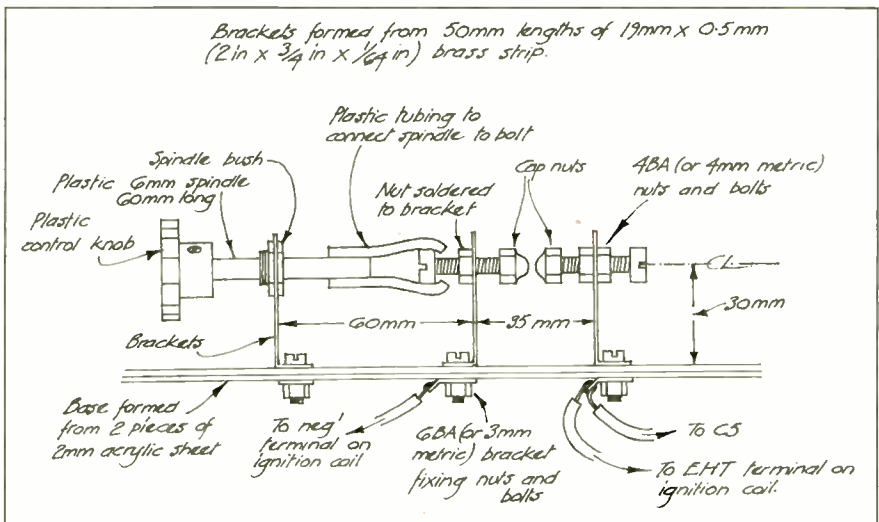 Brackets formed from 50mm lengths of 19mm x 0·5mm
(2in x 3/4in x 1/64in) brass strip.
Plastic tubing to
connect spindle to bolt
Spindle bush
Plastic 6mm spindle
60mm long
Plastic
control knob
Nut soldered
to bracket
Cap nuts
4BA (or 4mm metric)
nuts and bolts
CL
30mm
60mm
35mm
Brackets
Base formed
from 2 pieces of
2mm acrylic sheet
To neg'
terminal on
ignition coil
6BA (or 3mm
metric) bracket
fixing nuts and
bolts
To C5
To EHT terminal on
ignition coil.